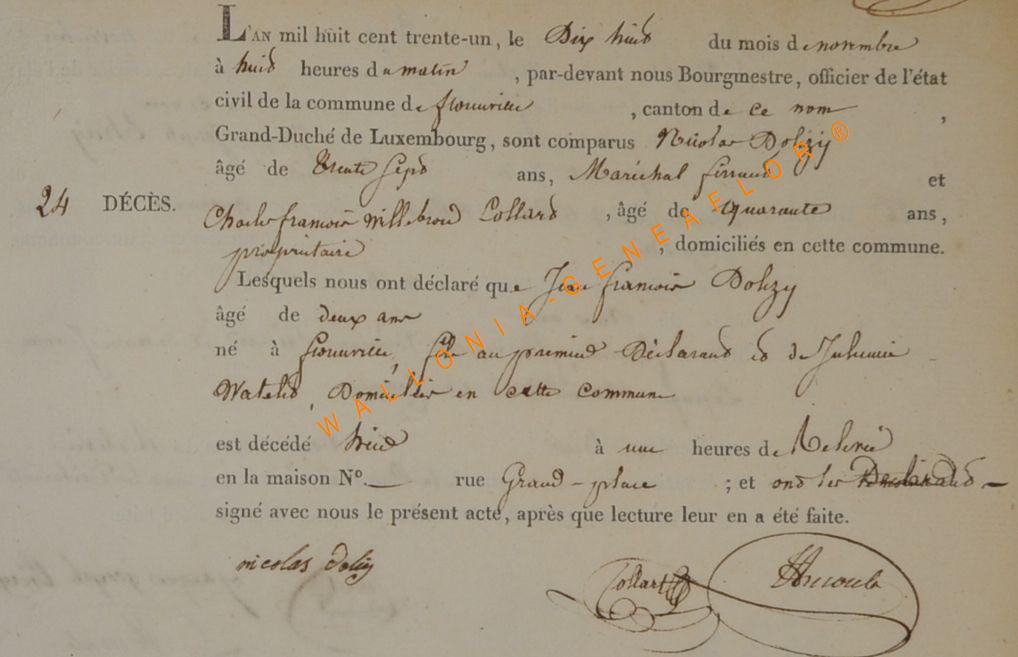 L'AN mil huit cent trente-un, le Dix huid du mois de novembre
à huid heures du matin, par-devant nous Bourgmestre, officier de l'état
civil de la commune de florenville, canton de ce nom,
Grand-Duché de Luxembourg, sont comparus Nicolas Dolizy
âgé de trente Sept ans, Maréchal ferrand et
24 DÉCÈS. Charles françois Willebrord Collard, âgé de quarante ans,
propriétaire, domiciliés en cette commune.
Lesquels nous ont déclaré que Jean françois Dolizy
âgé de deux ans
né à florenville, fils au premier Déclarand et de
Watelet, Domiciliés en cette commune
est décédé hier à une heures de Relevée
en la maison N°. — rue Grand-place ; et ond les Déclarand
signé avec nous le présent acte, après que lecture leur en a été faite.
nicolas dolizy Collart
WALLONIA-GENEAFLOR ®